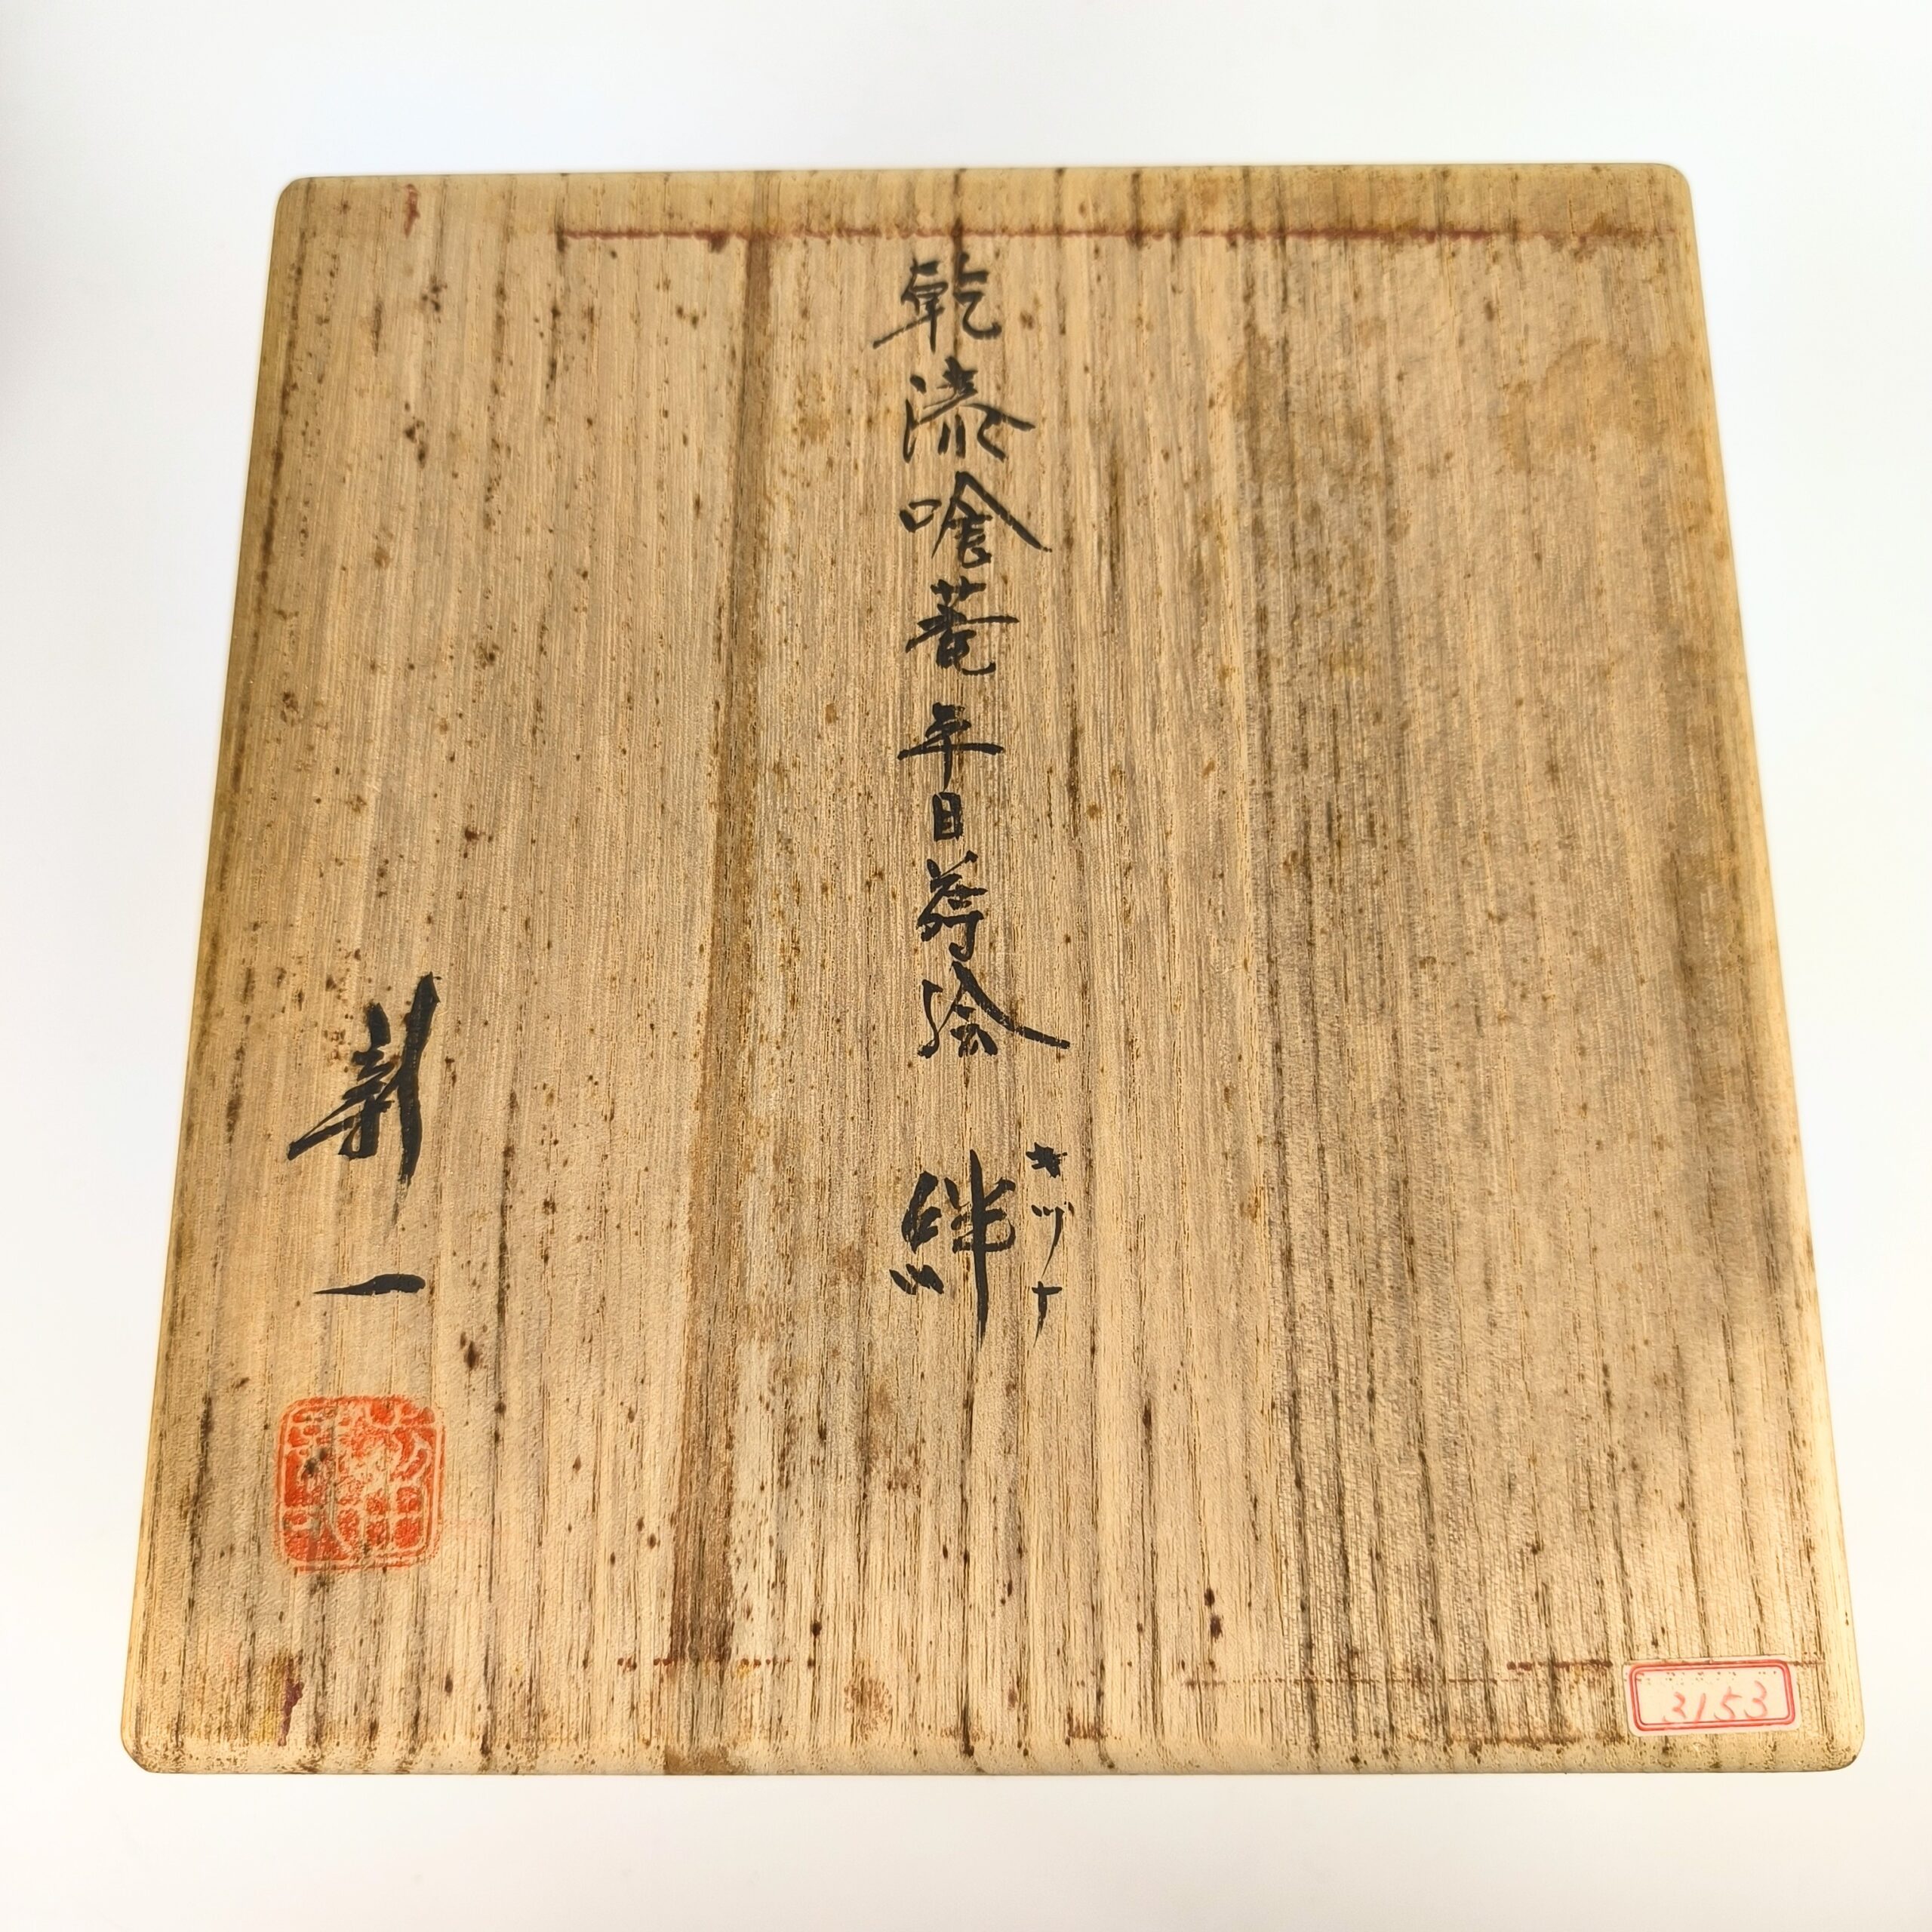 乾漆喰菴平目蒔絵 絆
キヅナ
新一
3153